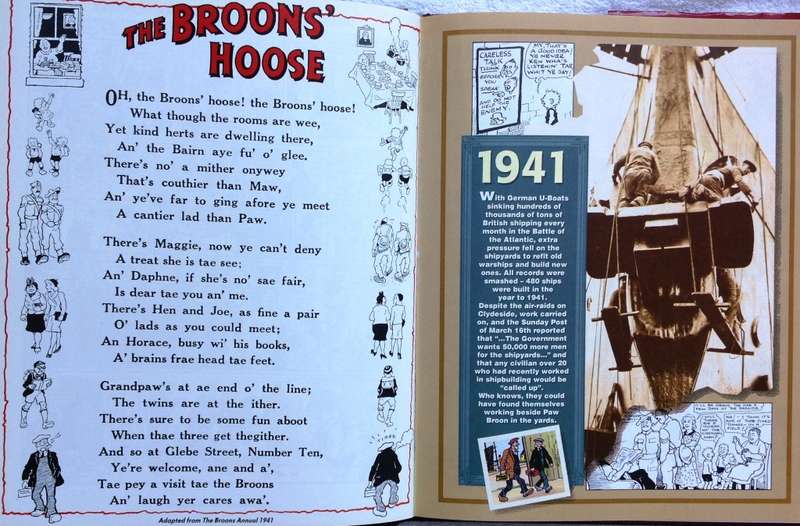 THE BROONS'
HOOSE
OH, the Broons' hoose! the Broons' hoose!
What though the rooms are wee,
Yet kind herts are dwelling there,
An' the Bairn aye fu' o' glee.
There's no' a mither onywey
That's couthier than Maw,
An' ye've far to ging afore ye meet
A cantier lad than Paw.
There's Maggie, now ye can't deny
A treat she is tae see;
An' Daphne, if she's no' sae fair,
Is dear tae you an' me.
There's Hen and Joe, as fine a pair
O' lads as you could meet;
An Horace, busy wi' his books,
A' brains frae head tae feet.
Grandpaw's at ae end o' the line;
The twins are at the ither.
There's sure to be some fun aboot
When thae three get thegither.
And so at Glebe Street, Number Ten,
Ye're welcome, ane and a',
Tae pey a visit tae the Broons
An' laugh yer cares awa'.
Adapted from The Broons Annual 1941
CARELESS
TALK
THINK
BEFORE
YOU
SPEAK
AND DO NOT
HELP THE
ENEMY
MY, THAT'S
A GOOD IDEA
YE NEVER
KEN WHA'S
LISTENIN' TAE
WHIT YE SAY!
1941
With German U-Boats
sinking hundreds of
thousands of tons of
British shipping every
month in the Battle of
the Atlantic, extra
pressure fell on the
shipyards to refit old
warships and build new
ones. All records were
smashed – 480 ships
were built in the
year to 1941.
Despite the air-raids on
Clydeside, work carried
on, and the Sunday Post
of March 16th reported
that "...The Government
wants 50,000 more men
for the shipyards..." and
that any civilian over 20
who had recently worked
in shipbuilding would be
"called up".
Who knows, they could
have found themselves
working beside Paw
Broon in the yards.